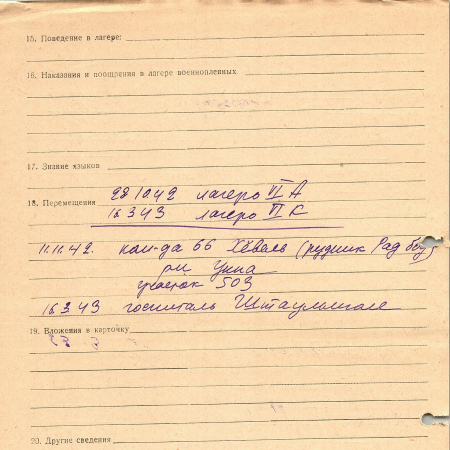 15. Поведение в лагере:
16. Наказания и поощрения в лагере военнопленных
17. Знание языков
18. Перемещения 28 10.42 лагерь VI А
16 3 43 лагерь VI К
11.11.42. ком-да 66 (рудник Рад
участок 503
16 3 43 госпиталь
19. Вложения в карточку
20. Другие сведения